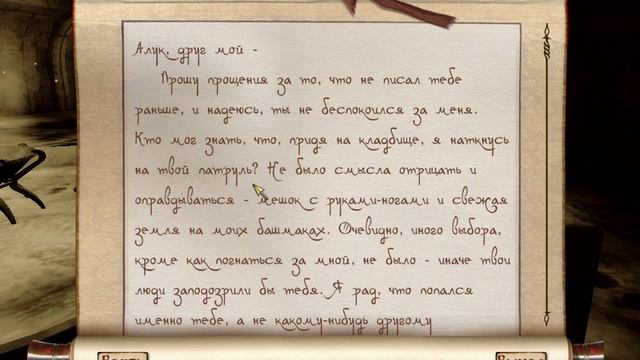 Алук, друг мой -
Прошу прощения за то, что не писал тебе
раньше, и надеюсь, ты не беспокоился за меня.
Кто мог знать, что, придя на кладбище, я наткнусь
на твой патруль? Не было смысла отрицать и
оправдываться - мешок с руками-ногами и свежая
земля на моих башмаках. Очевидно, иного выбора,
кроме как погнаться за мной, не было - иначе твои
люди заподозрили бы тебя. Я рад, что попался
именно тебе, а не какому-нибудь другому
Взять Выход